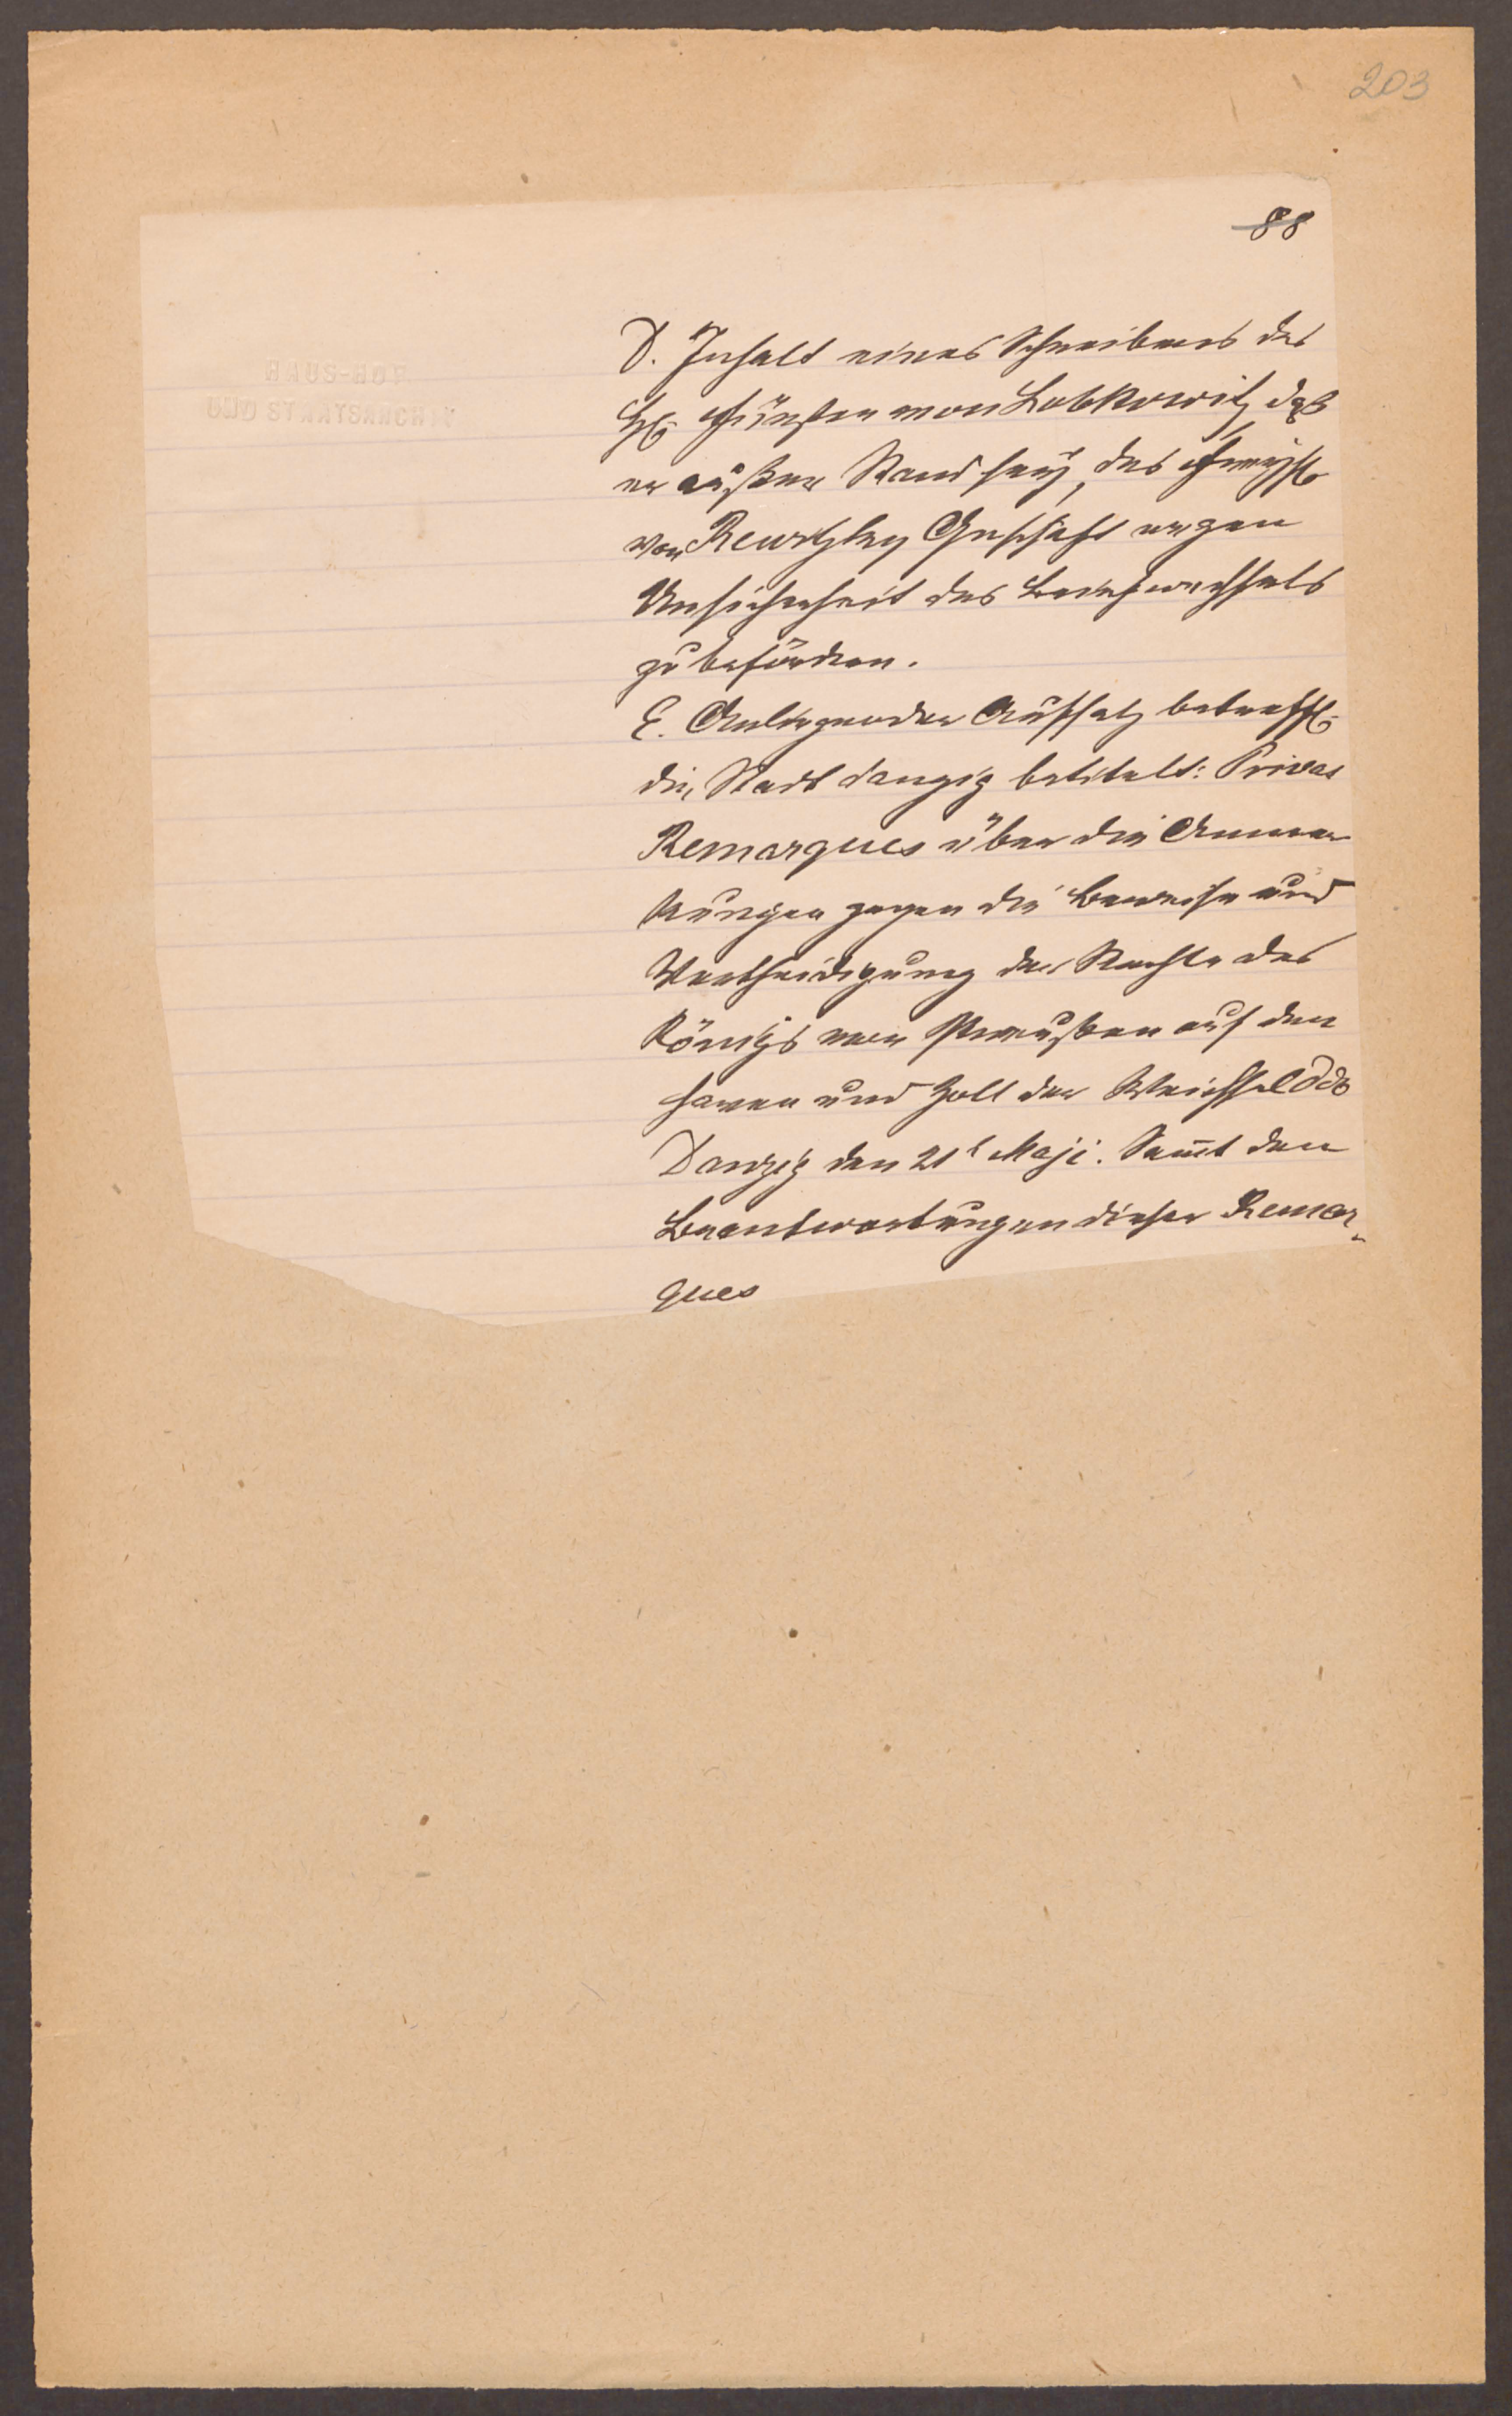 203
88
HAUS-HOF
UND STAATSARCHIV
D. Inhalt eines Schreibens des
H. Fürsten von Lobkowitz, daß
er außer Stand sey, das
von Rewitzky Geschäft wegen
Unsicherheit des Briefwechsels
zu befördern.
E. Anliegender Aufsatz betreff.
die Stadt danzig betitelt: Privat
Remarques über die Anmer
kungen gegen die Beweise und
Vertheidigung der Rechte des
Königs von Preußen auf den
haven und Zoll der Weichsel ddo
Danzig den 21t Maji. Samt den
Beantwortungen dieser Remar„
ques